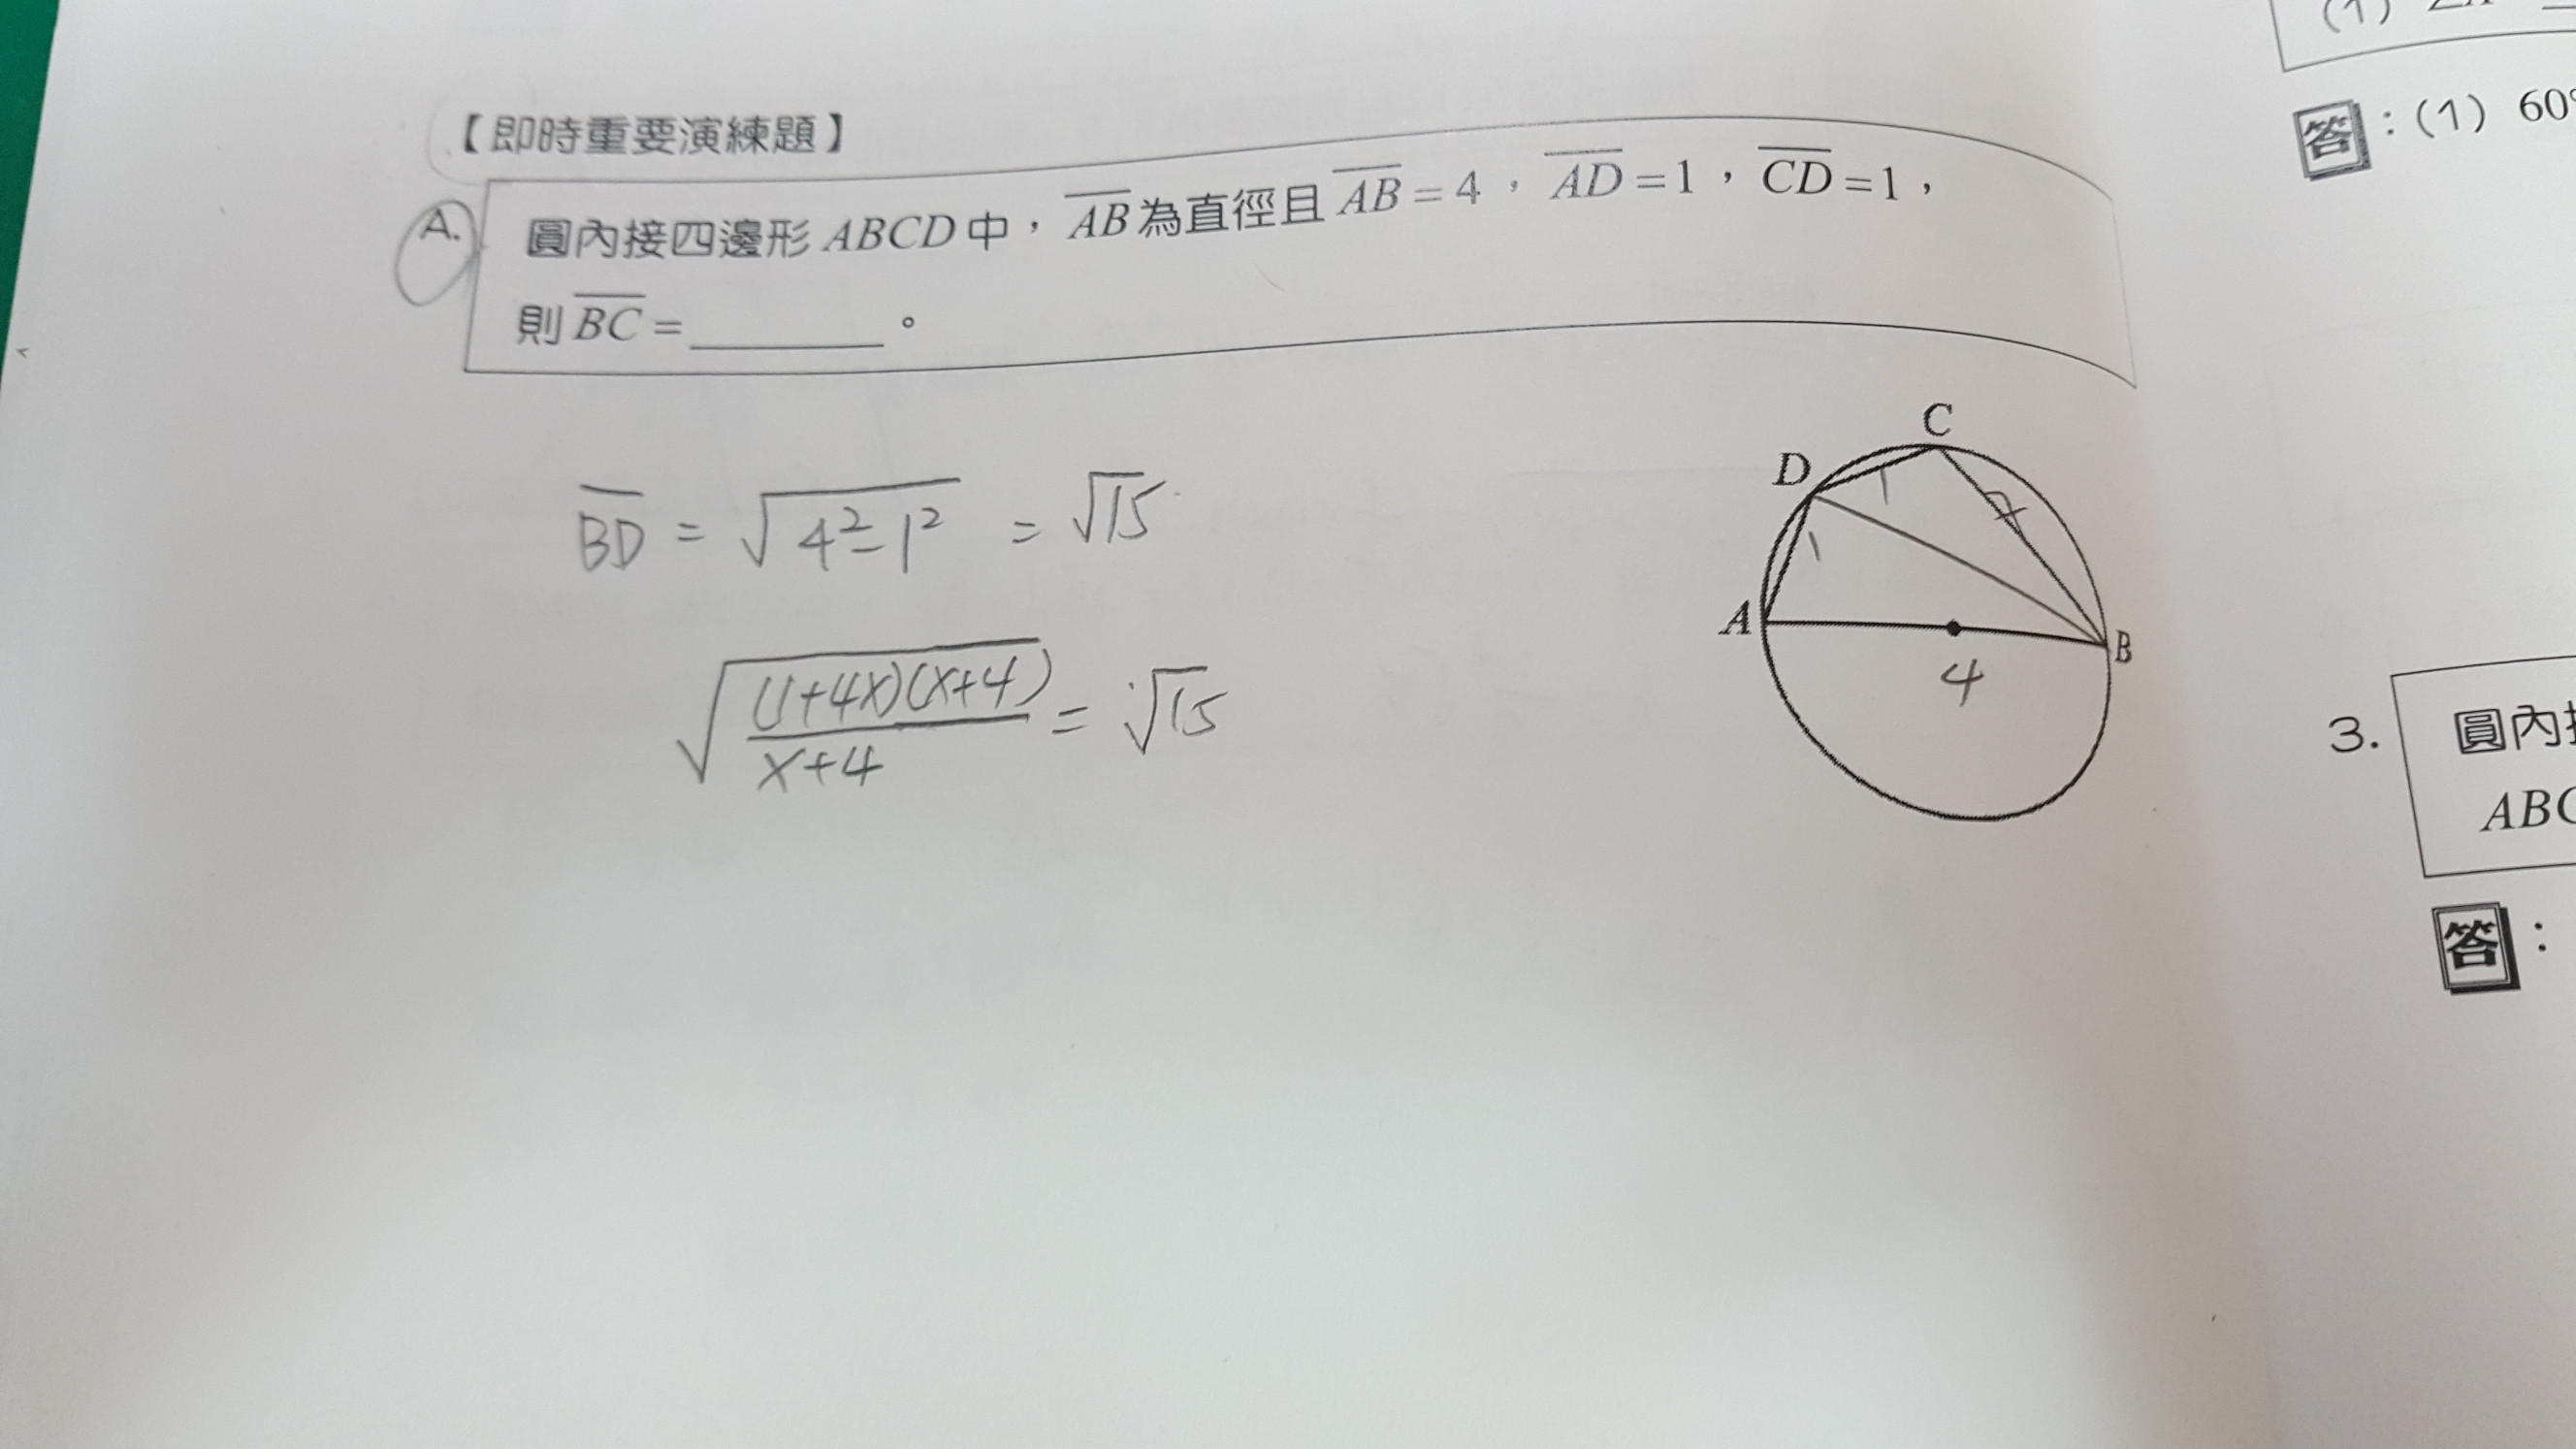 【即時重要演練題】
A. 圓內接四邊形 ABCD 中，AB 為直徑且 AB = 4，AD = 1，CD = 1，
則 BC = ________。
BD = √(4²-1²) = √15
√((1+4x)(x+4)/(x+4)) = √15
C
D
1
x
1
A
B
4
(1)
答：(1) 60°
3. 圓內接
ABC
答：